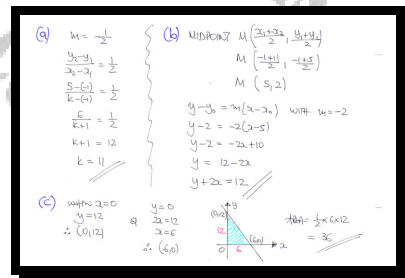 (a) m = 1/2
(y₂-y₁)/(x₂-x₁) = 1/2
(5-(-1))/(k-(-1)) = 1/2
6/(k+1) = 1/2
k+1 = 12
k = 11
(b) MIDPOINT M((x₁+x₂)/2, (y₁+y₂)/2)
M((-1+11)/2, (-1+5)/2)
M(5,2)
y-y₀ = m(x-x₀) WITH m=-2
y-2 = -2(x-5)
y-2 = -2x+10
y = 12-2x
y+2x=12
(c) WHEN x=0
y=12
∴ (0,12)
&
y=0
2x=12
x=6
∴ (6,0)
y
(0,12)
12
(6,0)
0 6 x
AREA = 1/2 × 6×12
= 36